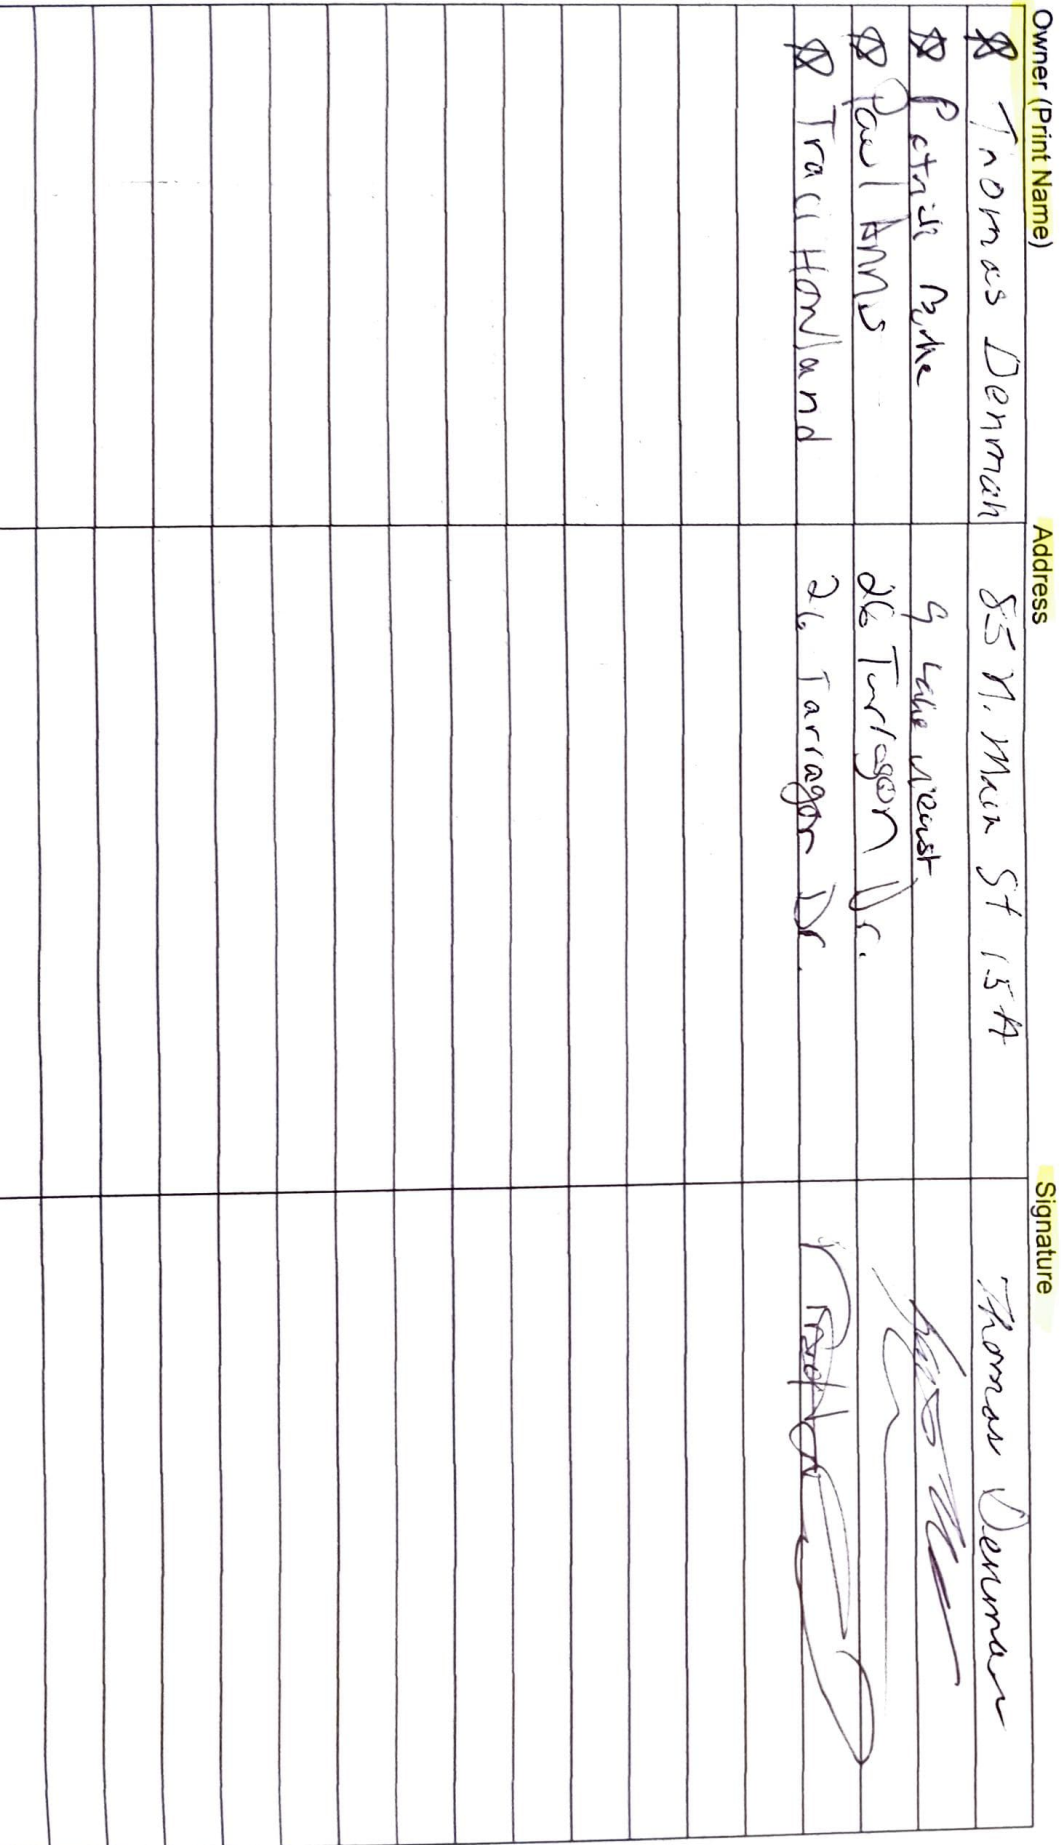 Owner (Print Name) Address Signature
Thomas Denman 85 N. Main St 15A Thomas Denman
9 Lake
Paul Annis 26 Tarragon Dr.
Traci Howland 26 Tarragon Dr.